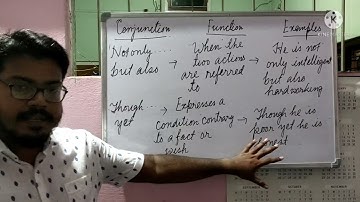 Conjunction Function Examples
Not only.... → When the → He is not
but also two actions only intellegent
are referred but also
to hardworking
Though... → Expresses a → Though he is
yet condition contrary poor yet he is
to a fact or honest
wish